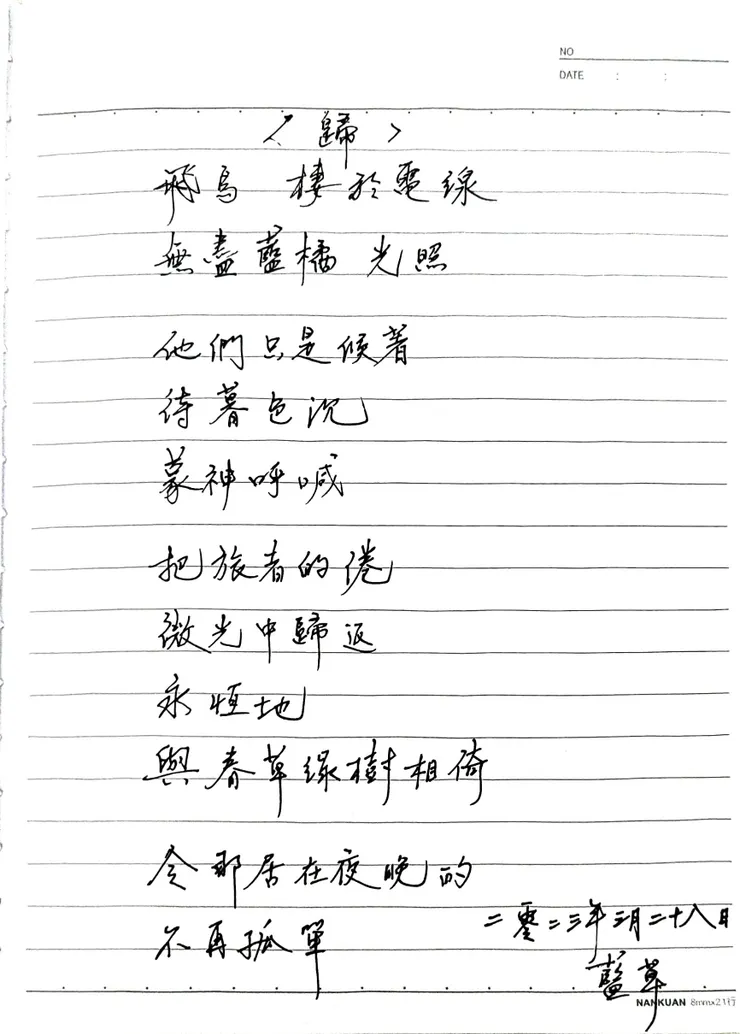 NO
DATE : :
〈歸〉
飛鳥 棲於電線
無盡藍橘 光照
他們只是候著
待暮色沉
蒙神呼喊
把旅者的倦
微光中歸返
永恆地
與春草綠樹相倚
令那居在夜晚的
不再孤單
二零二三年三月二十八日
藍草
NANKUAN 8mmx21行